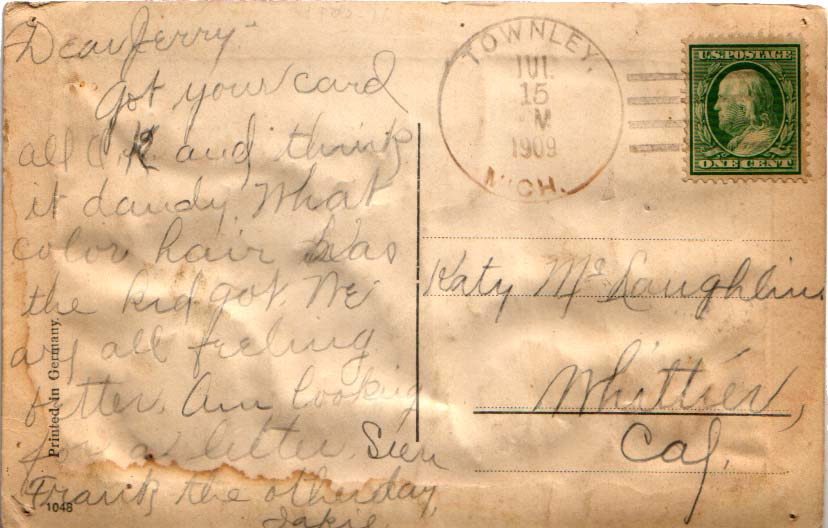 Dear Jerry-
Got your card
all O.K and think
it dandy. What
color hair has
the kid got. We
are all feeling
better. Am looking
for a letter. Seen
Frank the other day.
Jakie.
Printed in Germany
1048
TOWNLEY,
JUL
15
M
1909
MICH.
U.S. POSTAGE
ONE CENT
Katy McLaughlin
Whittier,
Cal.